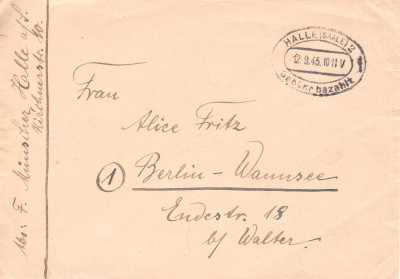 Abs: F. Münscher, Halle a/S.
Kirchnerstr. 10.
HALLE (SAALE) 2
12.9.45.10-11 V
Gebühr bezahlt
Frau
Alice Fritz
1 Berlin-Wannsee
Endestr. 18
b/ Walter.